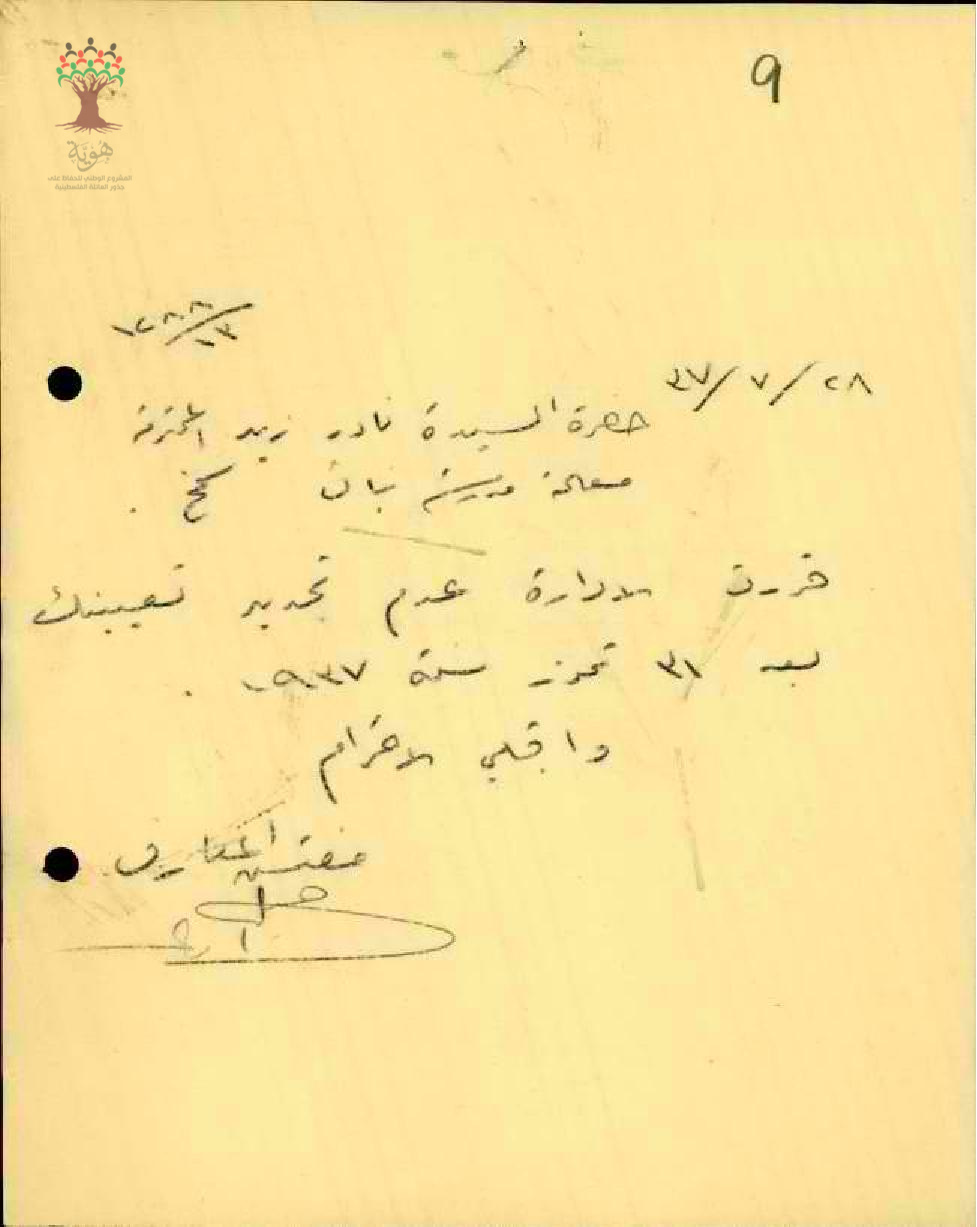 9
هوية
المشروع الوطني للحفاظ على
جذور العائلة الفلسطينية
٢٨/٧/٣٧
حضرة السيدة نادر زيد المحترمة
معلمة مدرسة بنات
قررت الادارة عدم تجديد تعيينك
بعد ٣١ تموز سنة ١٩٣٧ .
واقبلي الاحترام
مفتش المعارف